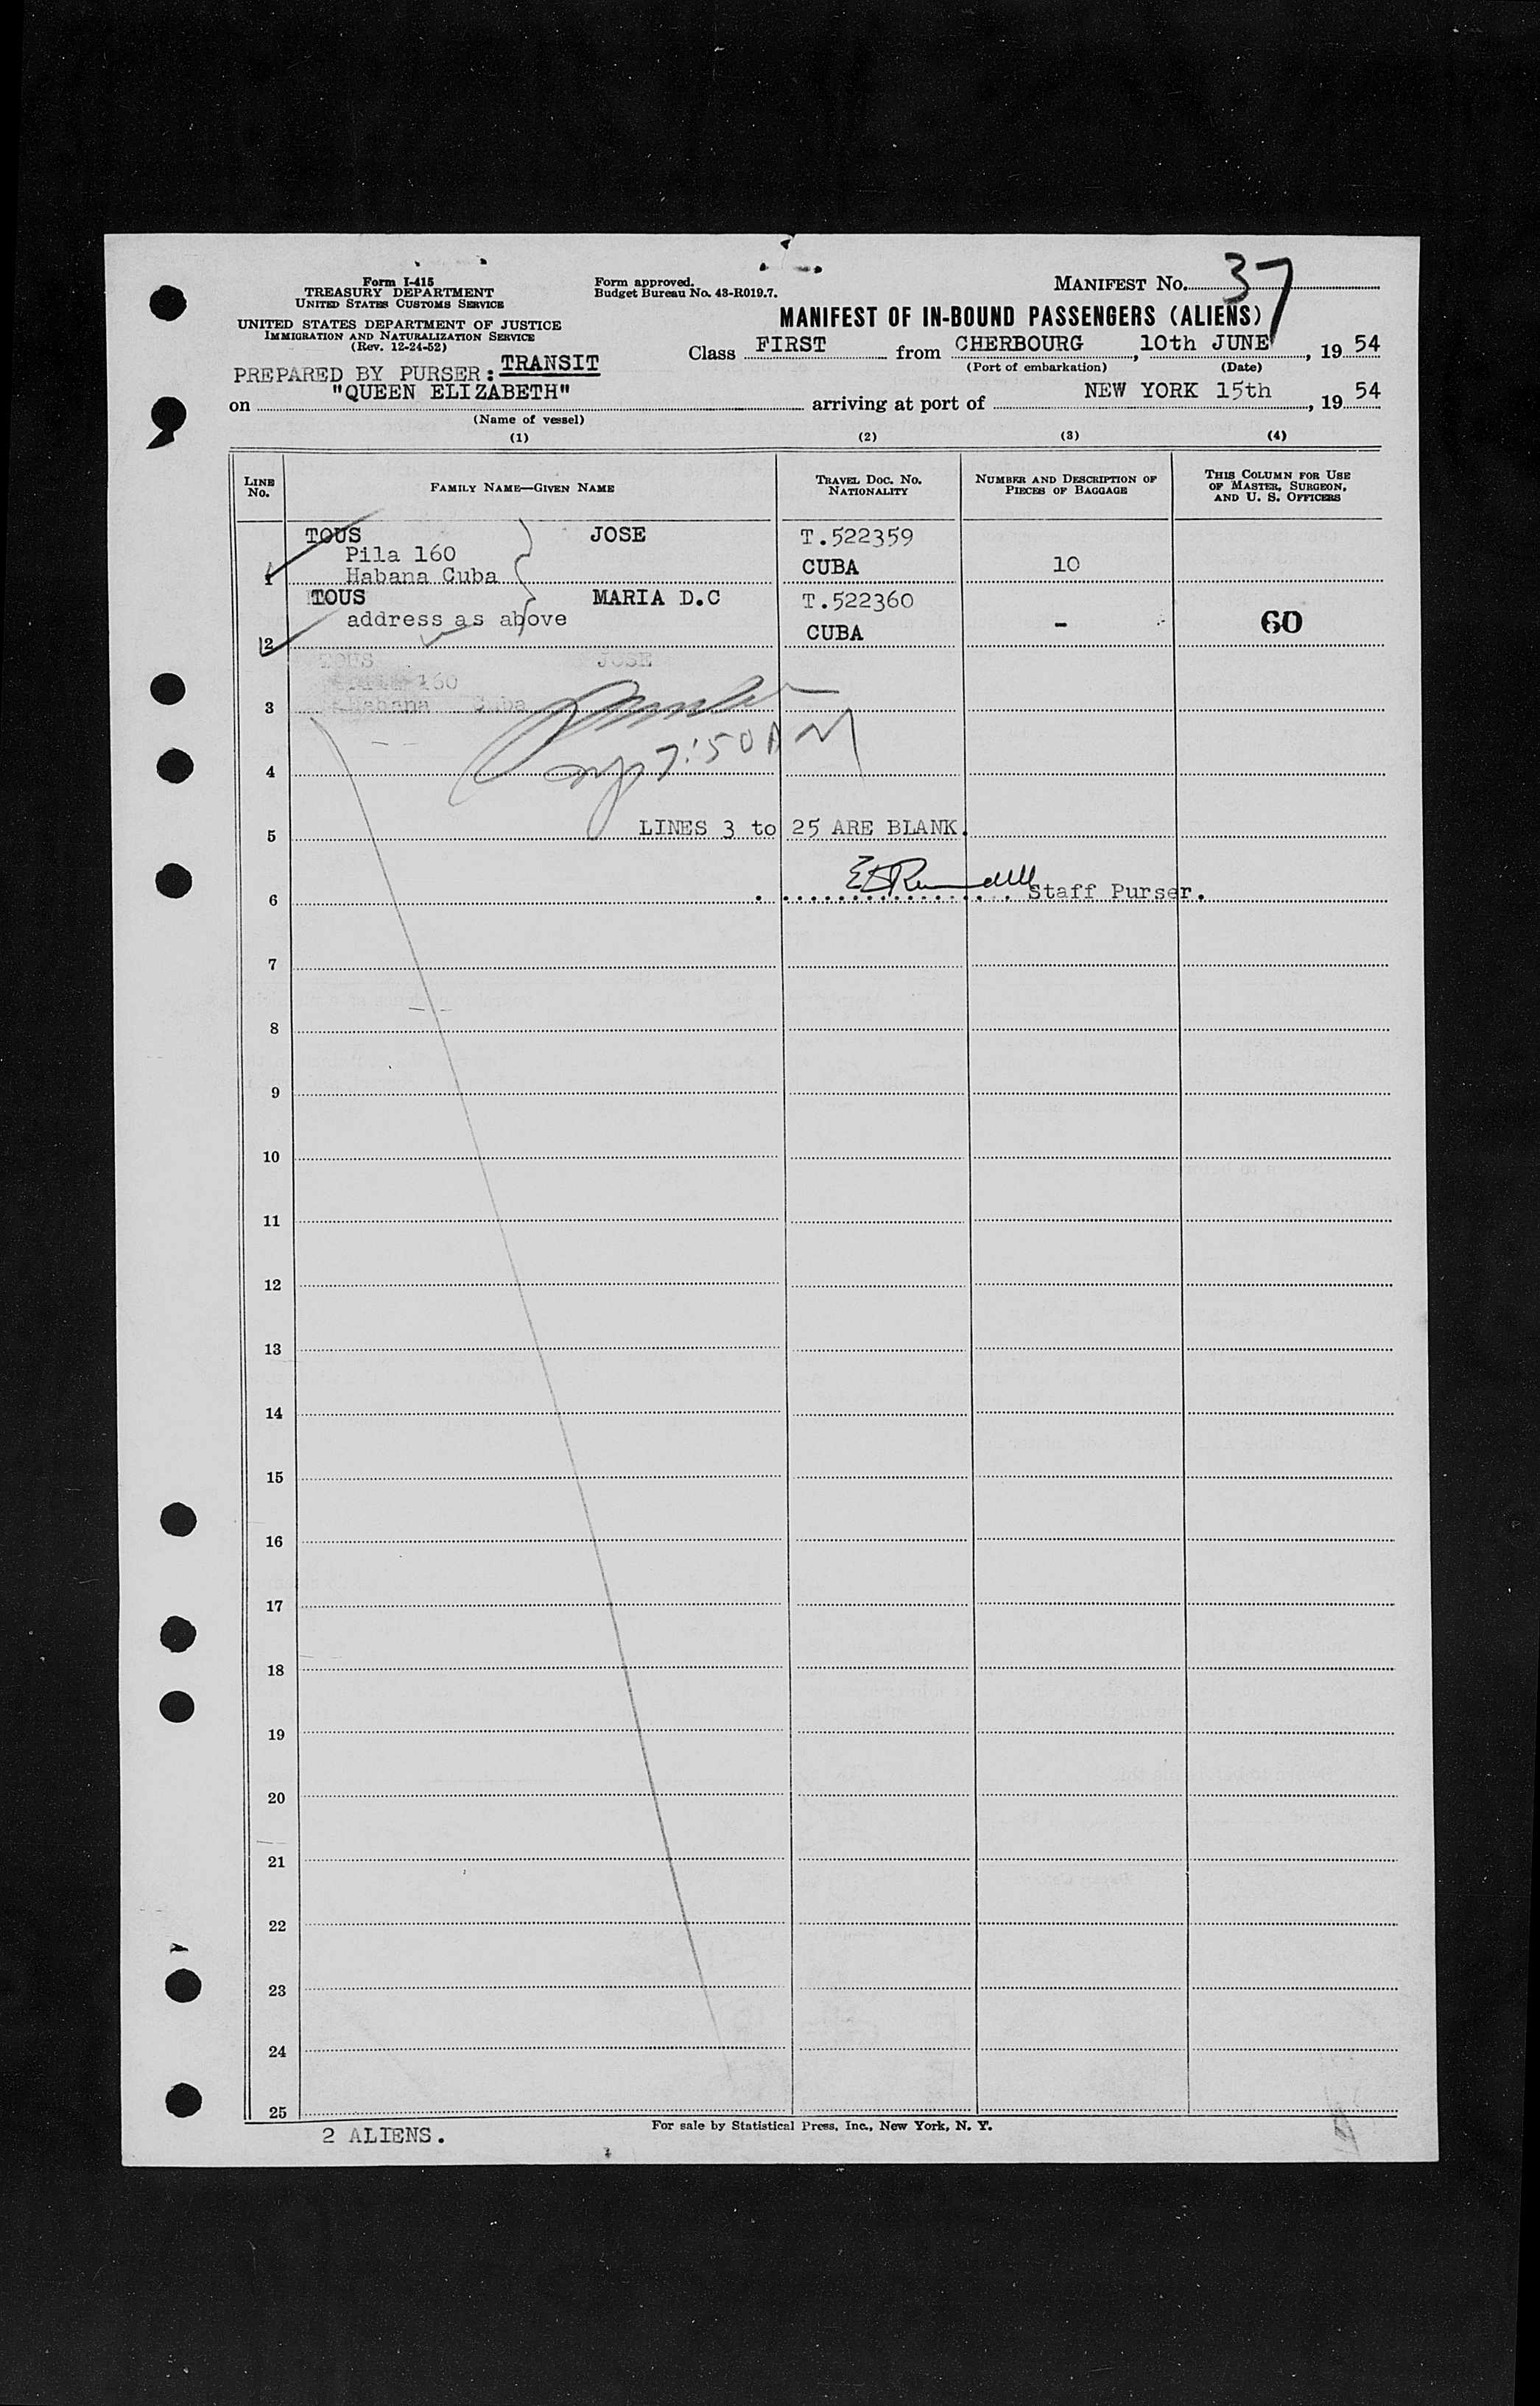 Form I-415
TREASURY DEPARTMENT
UNITED STATES CUSTOMS SERVICE
UNITED STATES DEPARTMENT OF JUSTICE
IMMIGRATION AND NATURALIZATION SERVICE
(Rev. 12-24-52)
Form approved.
Budget Bureau No. 43-R019.7.
MANIFEST No. 37
MANIFEST OF IN-BOUND PASSENGERS (ALIENS)
Class FIRST from CHERBOURG, 10th JUNE, 19 54
(Port of embarkation) (Date)
PREPARED BY PURSER: TRANSIT
on "QUEEN ELIZABETH" arriving at port of NEW YORK 15th, 19 54
(Name of vessel)
(1) (2) (3) (4)
LINE No. FAMILY NAME—GIVEN NAME TRAVEL DOC. NO. NATIONALITY NUMBER AND DESCRIPTION OF PIECES OF BAGGAGE THIS COLUMN FOR USE OF MASTER, SURGEON, AND U. S. OFFICERS
TOUS JOSE T.522359
Pila 160 CUBA 10
1 Habana Cuba
TOUS MARIA D.C T.522360
address as above CUBA - 60
2
TOUS JOSE
Pila 160
3 Habana Cuba
7:50 AM
4
5 LINES 3 to 25 ARE BLANK.
6 Staff Purser.
7
8
9
10
11
12
13
14
15
16
17
18
19
20
21
22
23
24
25
2 ALIENS.
For sale by Statistical Press, Inc., New York, N. Y.